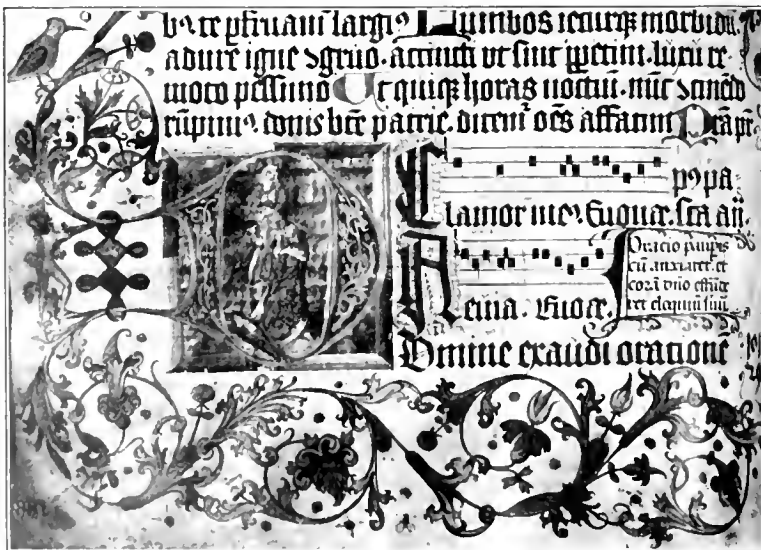 bꝰ te pfruam̄ largiꝰ Lumbos iecurqꝫ morbidū.
adure igne ↄgruo. accincti vt sint ꝑpetim. luxu re
moto pessimo Ut quiqꝫ horas noctiū. nūc ↄcinēdo
rūpimꝰ. donis bt̄e patrie. ditem̄ oēs affatim
pꝰ pa
Clamor meꝰ. Euouae. sc̄a añ.
Euoae.
Oracio paupis
cū anxiatꝰ. et
corā dn̄o effude
ret eloquiū suū.
Domine exaudi oratione